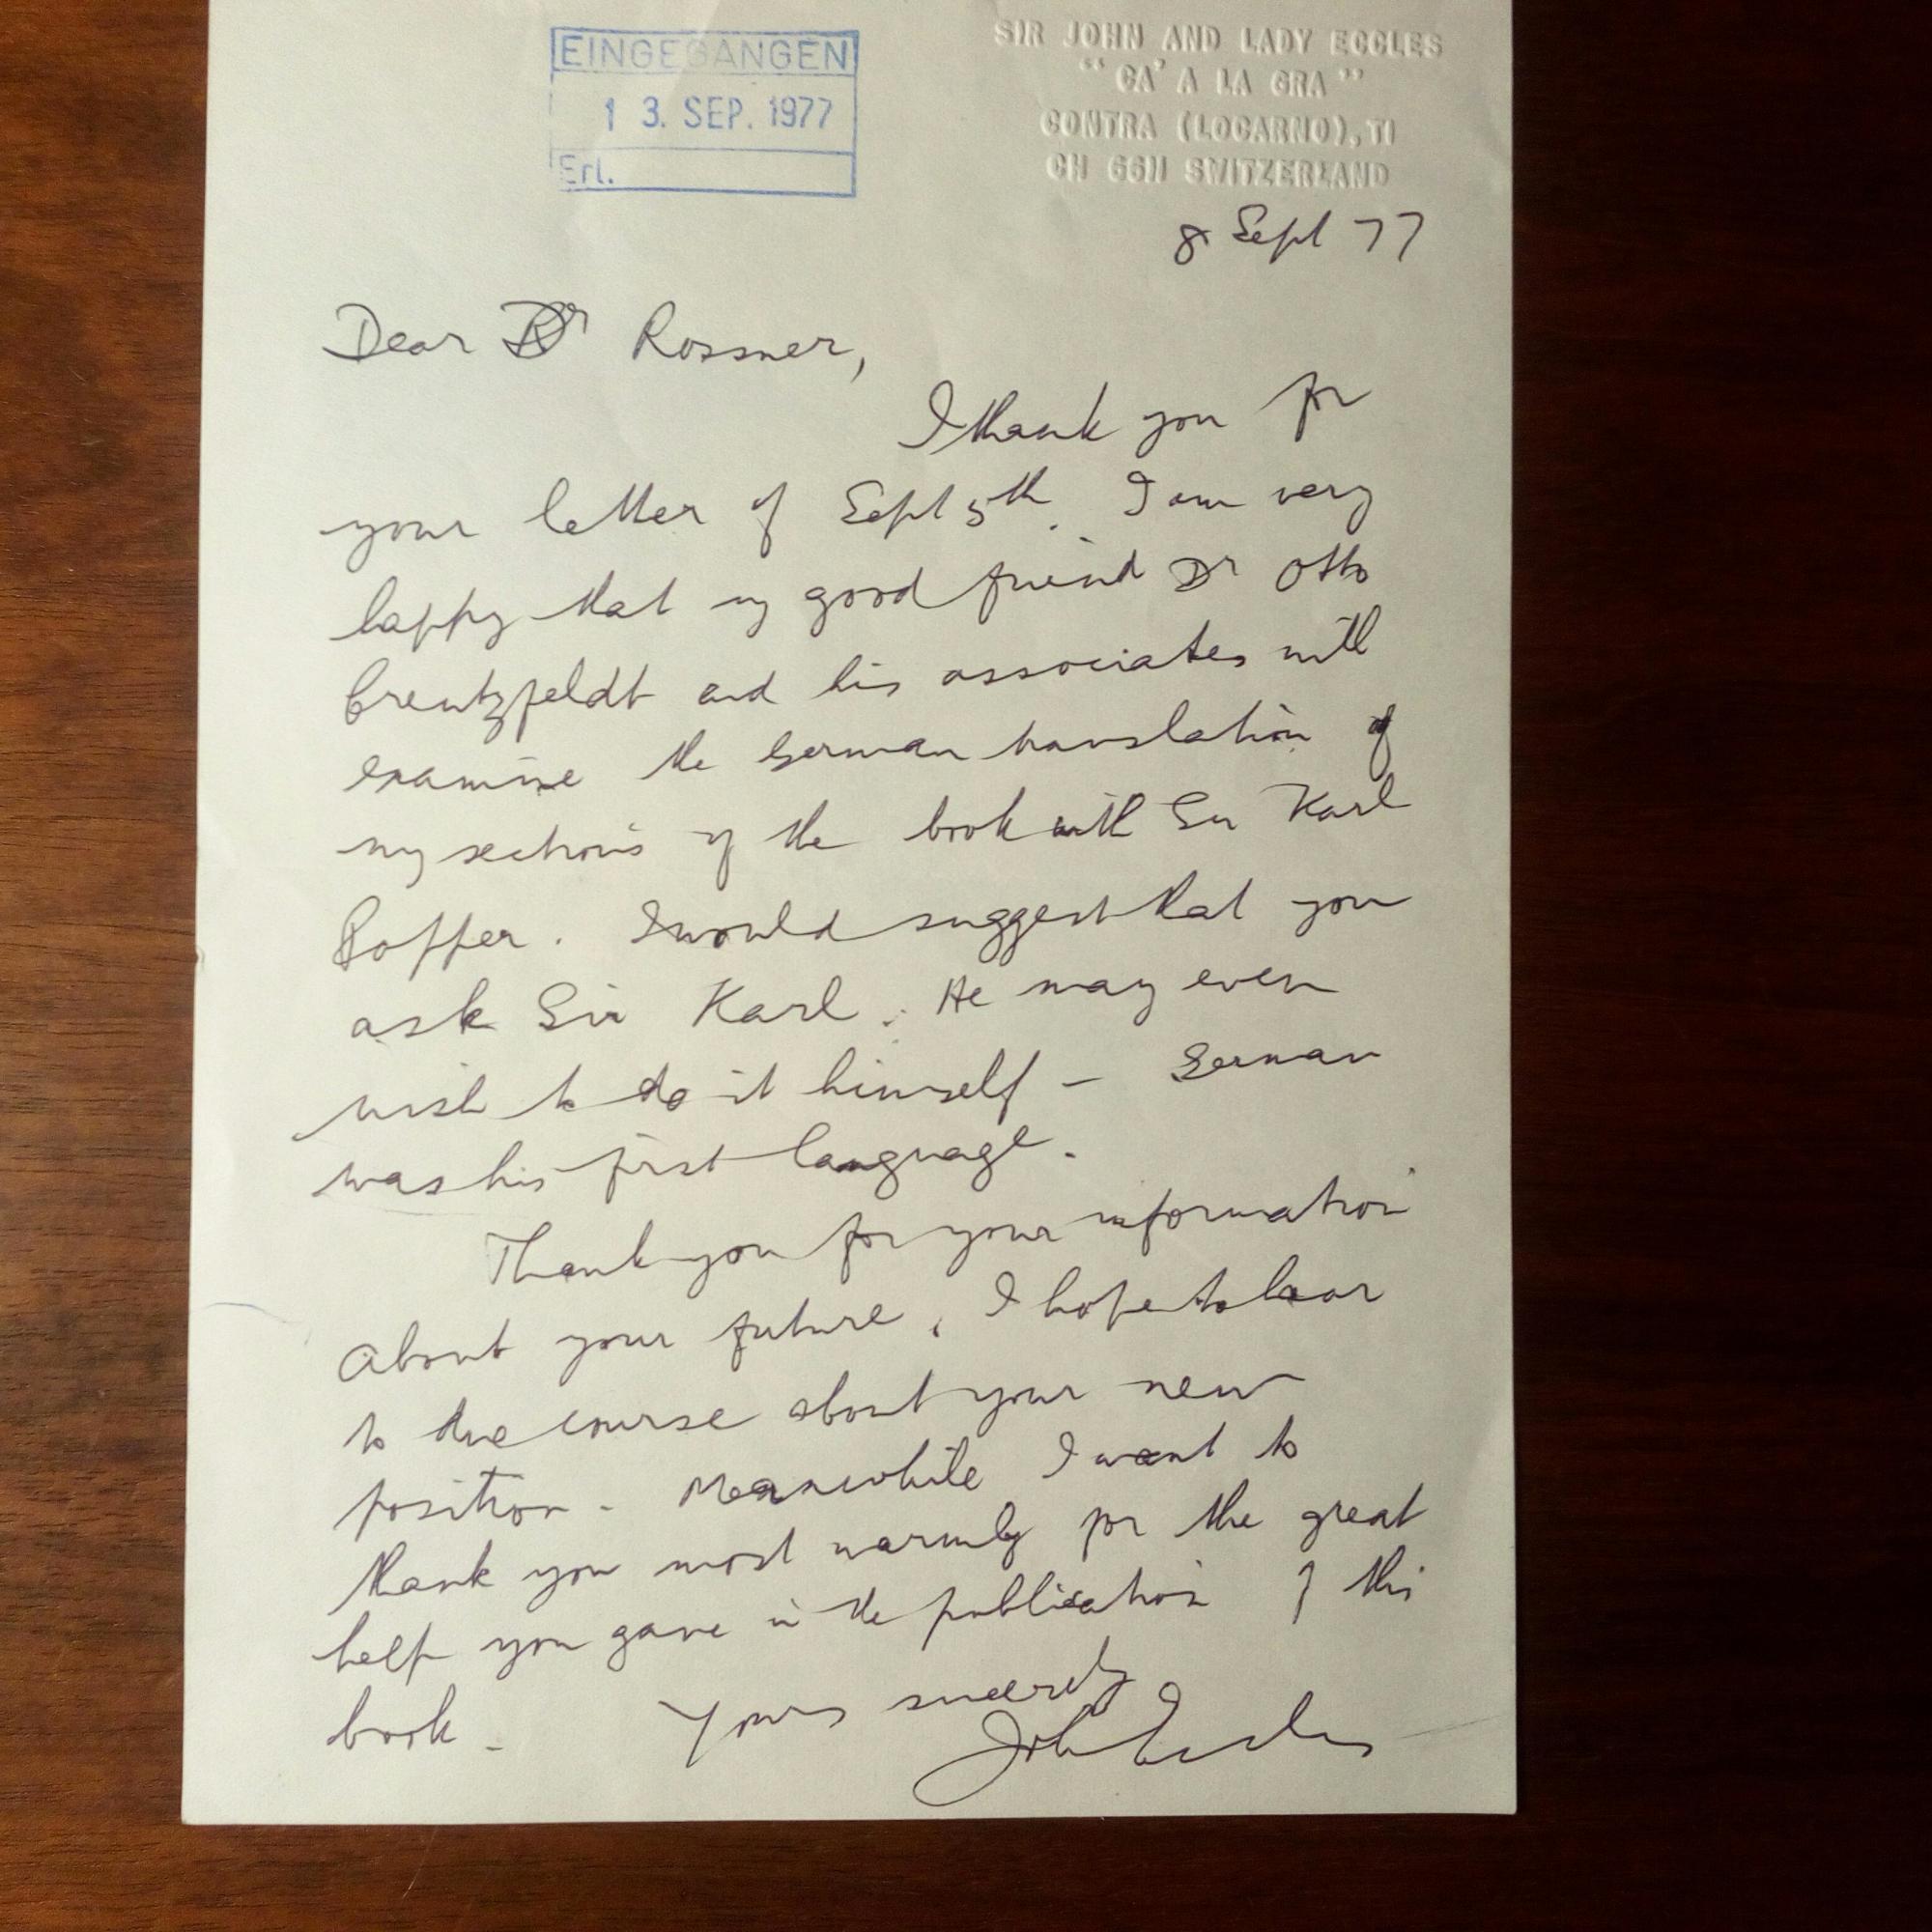 EINGEGANGEN
13. SEP. 1977
Erl.
SIR JOHN AND LADY ECCLES
"CA' A LA GRA"
CONTRA (LOCARNO), TI
CH 6611 SWITZERLAND
8 Sept 77
Dear Dr Rossner,
I thank you for
your letter of Sept 5th. I am very
happy that my good friend Dr Otto
Creutzfeldt and his associates will
examine the German translation of
my sections of the book with Sir Karl
Popper. I would suggest that you
ask Sir Karl. He may even
wish to do it himself - German
was his first language.
Thank you for your information
about your future, I hope to hear
in due course about your new
position. Meanwhile I want to
thank you most warmly for the great
help you gave in the publication of this
book.
Yours sincerely
John Eccles